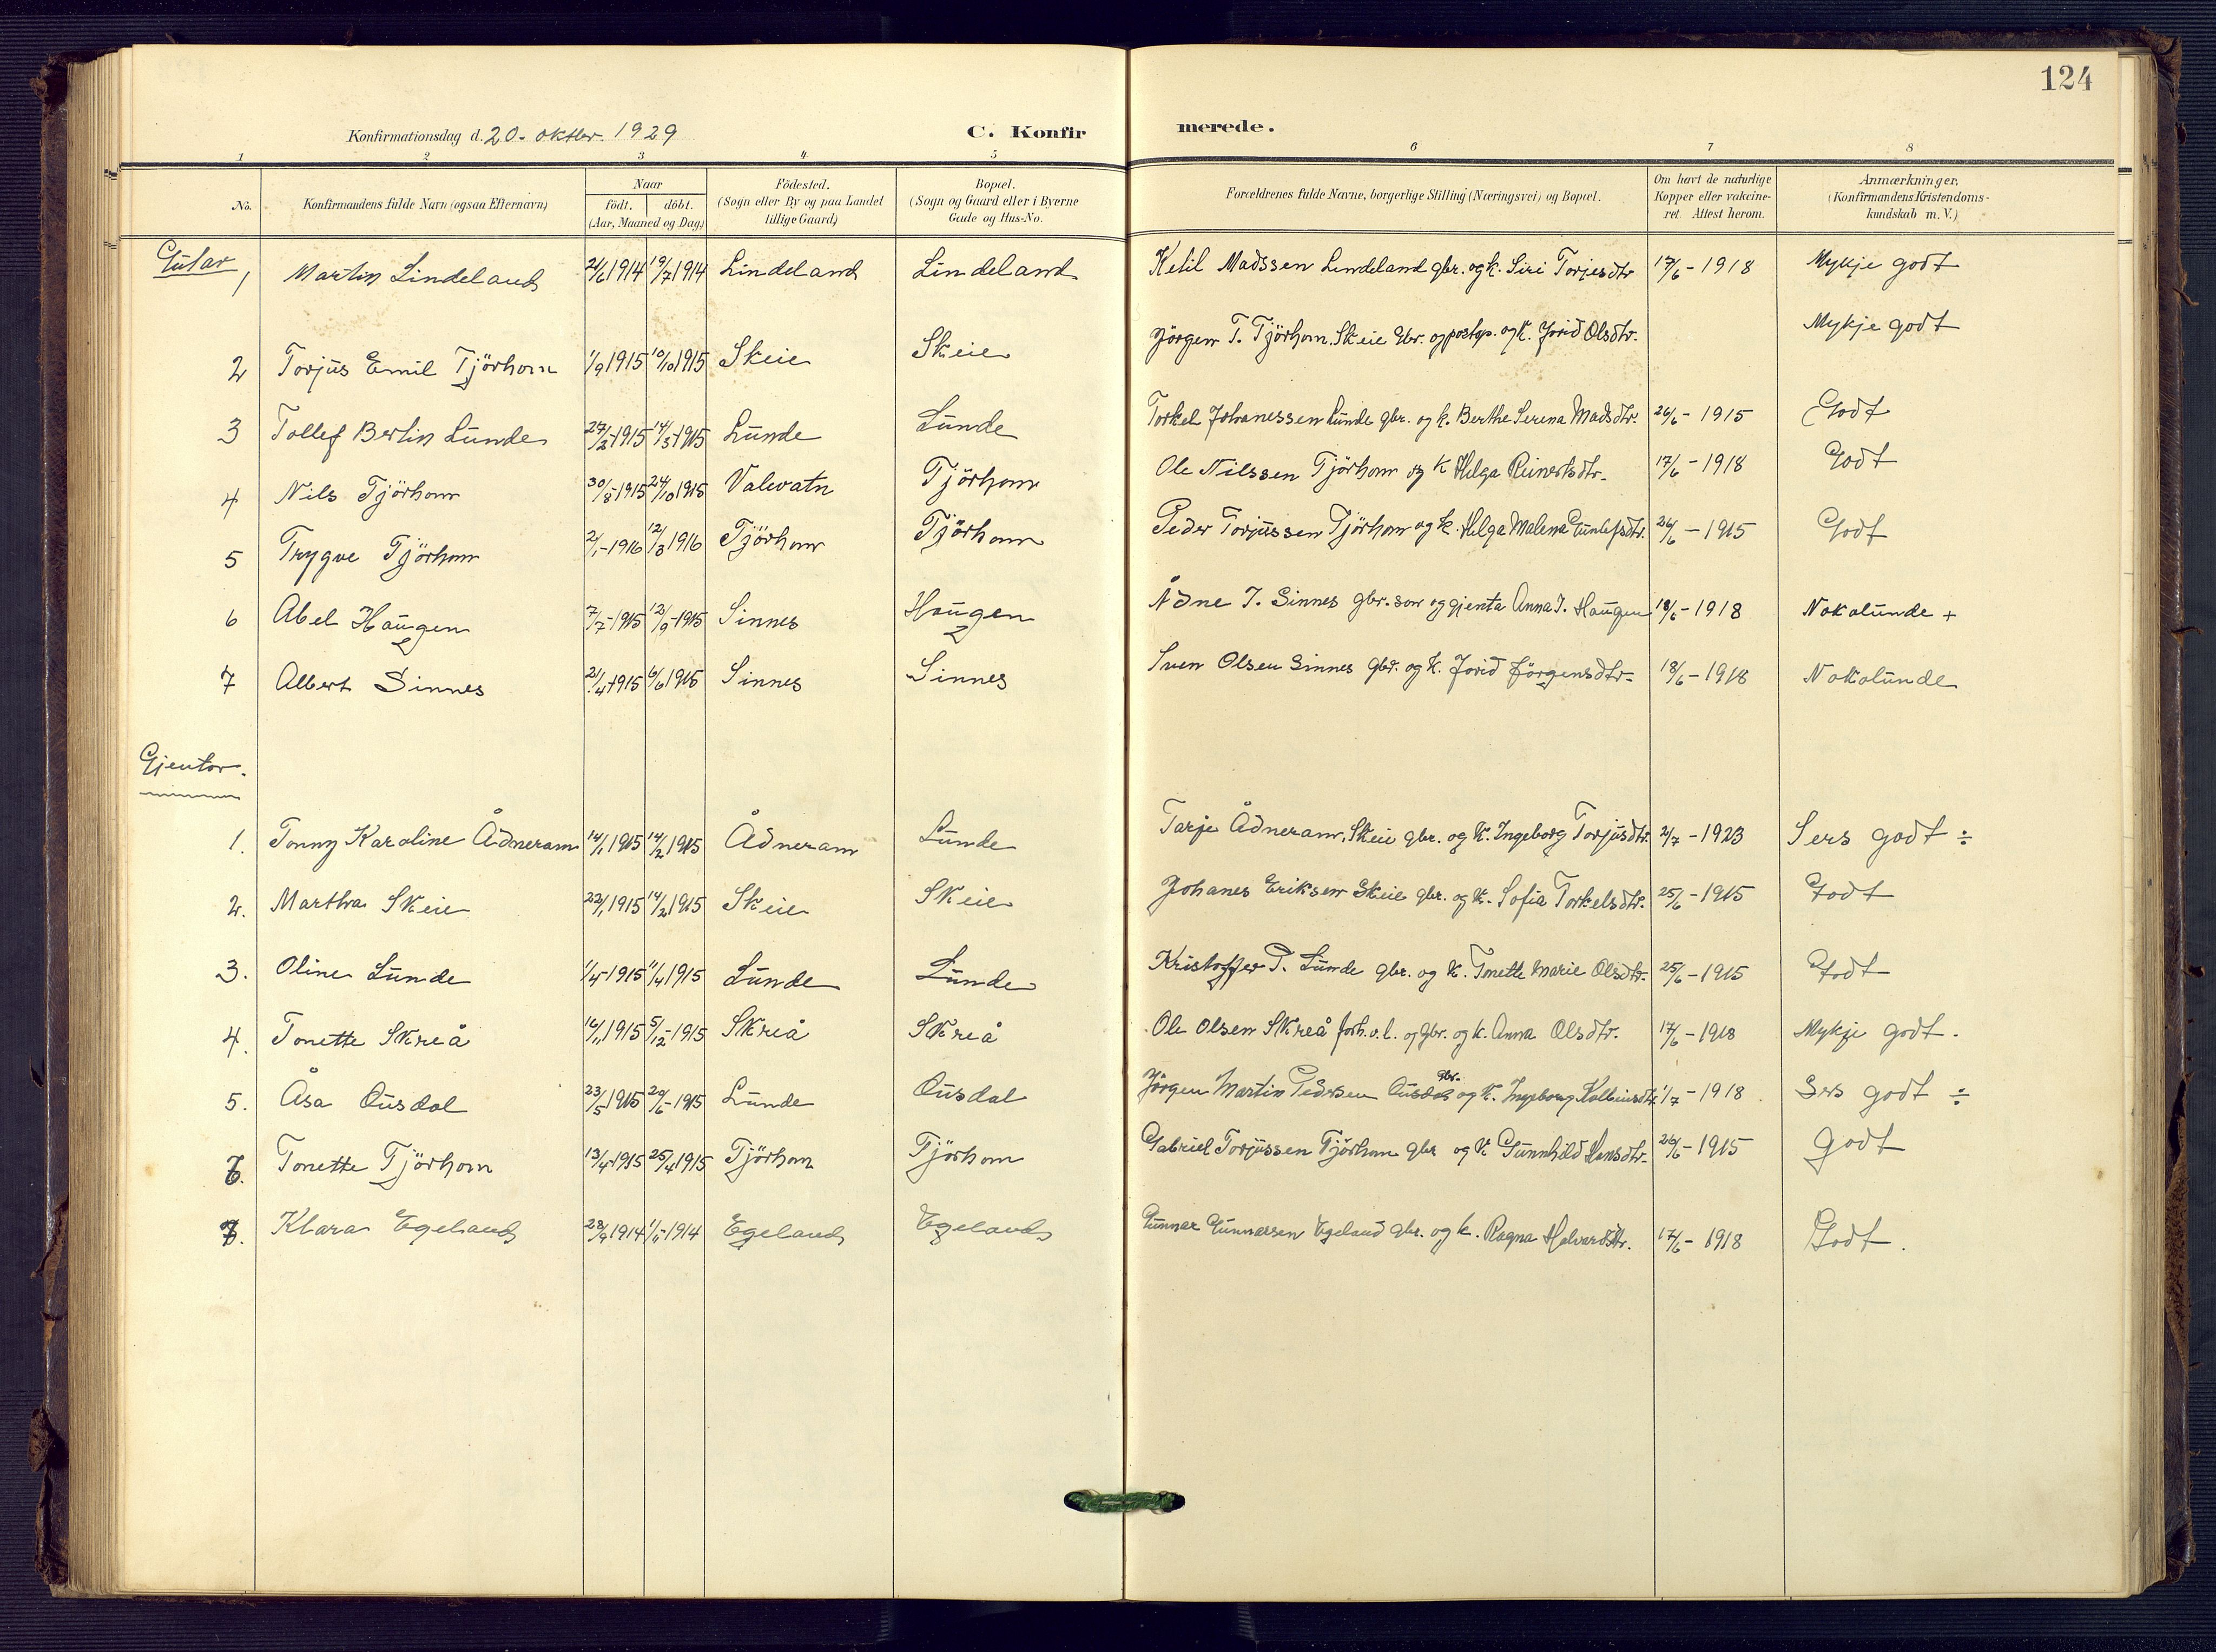 124
Konfirmationsdag d. 20. oktbr. 1929 C. Konfirmerede.
1 2 3 4 5 6 7 8
No. Konfirmandens fulde Navn (ogsaa Efternavn) Naar födt. döbt. (Aar, Maaned og Dag) Födested. (Sogn eller By og paa Landet tillige Gaard) Bopæl. (Sogn og Gaard eller i Byerne Gade og Hus-No. Forældrenes fulde Navne, borgerlige Stilling (Næringsvei) og Bopæl. Om havt de naturlige Kopper eller vakcineret. Attest herom. Anmærkninger. (Konfirmandens Kristendomskundskab m. V.)
Gutar
1 Martin Lindeland 2/6 1914 19/7 1914 Lindeland Lindeland Ketil Madssen Lindeland gbr. og k. Siri Torjesdtr 17/6 - 1918 Mykje godt
2 Torjus Emil Tjörhom 1/9 1915 10/10 1915 Skeie Skeie Jörgen T. Tjörhom, Skeie gbr. og postop. og k. Jorid Olsdtr. Mykje godt
3 Tollef Bertin Lunde 27/2 1915 14/3 1915 Lunde Lunde Torkel Johanessen Lunde gbr. og k. Berthe Serena Madsdtr. 26/6 - 1915 Godt
4 Nils Tjörhom 30/8 - 1915 24/10 1915 Valevatn Tjörhom Ole Nilssen Tjörhom og k Helga Reinertsdtr. 17/6 - 1918 Godt
5 Trygve Tjörhom 2/1 - 1916 12/3 1916 Tjörhom Tjörhom Peder Torjussen Tjörhom og k. Helga Malena Gunlefsdtr. 26/6 - 1915 Godt
6 Abel Haugen 7/7 - 1915 12/9 - 1915 Sinnes Haugen Ådne T. Sinnes gbr. son og gjenta Anna J. Haugen 18/6 - 1918 Nokolunde +
7 Albert Sinnes 21/4 1915 6/6 1915 Sinnes Sinnes Sven Olsen Sinnes gbr. og k. Jorid Jörgensdtr. 18/6 - 1918 Nokolunde
Gjentor.
1. Tonny Karoline Ådneram 14/1 1915 14/2 1915 Ådneram Lunde Tarje Ådneram, Skeie gbr. og k. Ingeborg Torjusdtr. 2/7 - 1923 Sers godt ÷
2. Martha Skeie 22/1 1915 14/2 1915 Skeie Skeie Johanes Eriksen Skeie gbr. og k. Sofia Torkelsdtr. 25/6 - 1915 Godt
3. Oline Lunde 1/4 - 1915 11/4 1915 Lunde Lunde Kristoffer P. Lunde gbr. og k. Tonette Marie Olsdtr. 25/6 - 1915 Godt
4. Tonette Skreå 16/11 1915 5/12 - 1915 Skreå Skreå Ole Olsen Skreå forh.v.l. og gbr. og k. Anna Olsdtr. 17/6 - 1918 Mykje godt.
5. Åsa Ousdal 23/5 1915 20/6 - 1915 Lunde Ousdal Jörgen Martin Pedersen Ousdal gbr. og k. Ingeborg Kolbeinsdtr. 1/7 - 1918. Sers godt ÷
6. Tonette Tjörhom 13/4 - 1915 25/4 1915 Tjörhom Tjörhom Gabriel Torjussen Tjörhom gbr og k Gunnhild Hansdtr. 26/6 - 1915 Godt
7. Klara Egeland 28/9 1914 1/11 - 1914 Egeland Egeland Gunnar Gunnarsen Egeland gbr. og k. Ragna Halvardsdtr. 17/6 - 1918 Godt.